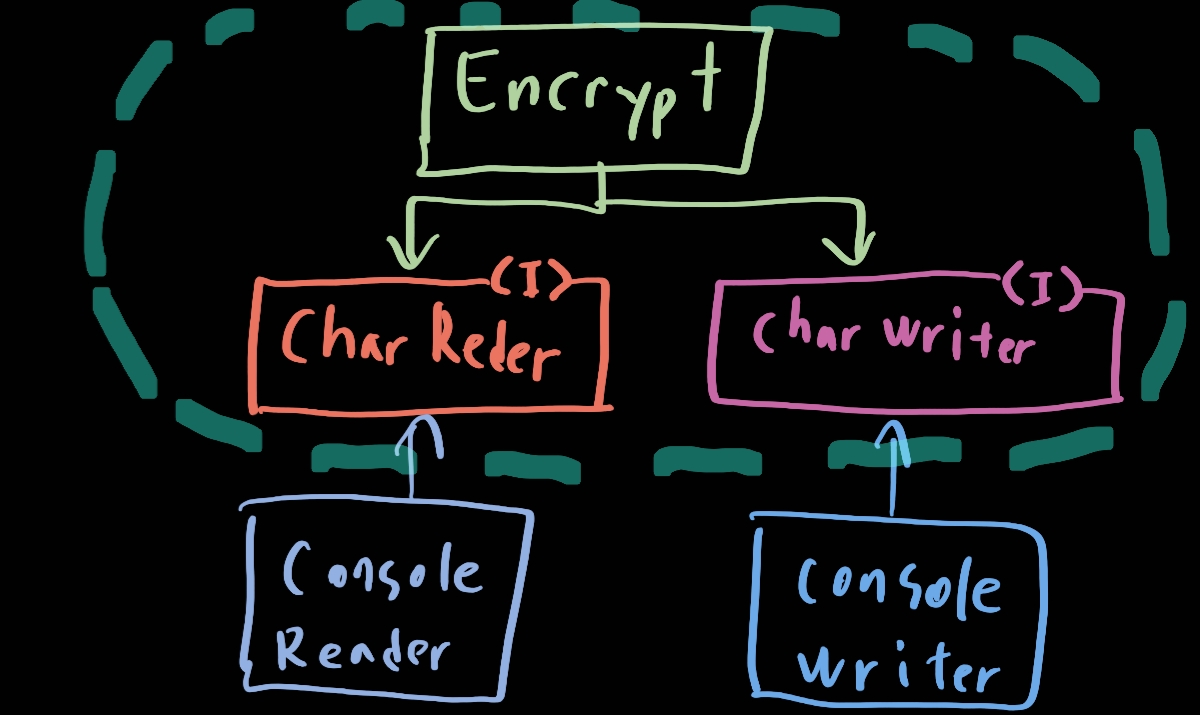 Encrypt
(I)
Char Reder
(I)
Char writer
Console
Reader
Console
writer